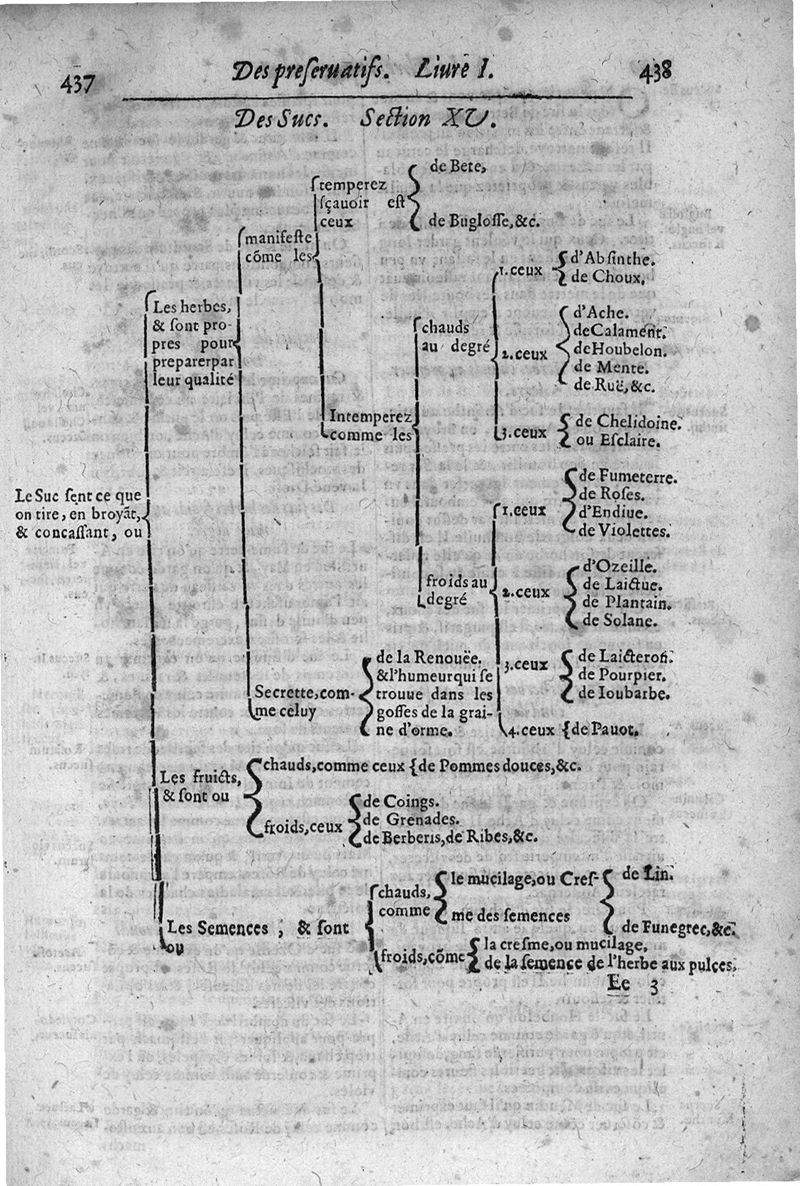 437 Des preſeruatifs. Liure I. 438
Des Sucs. Section XV.
Le Suc ſent ce que
on tire, en broyāt,
& concaſſant, ou
Les herbes,
& ſont pro-
pres pour
preparerpar
leur qualité
manifeſte
cōme les
temperez
ſçauoir eſt
ceux
de Bete,
de Bugloſſe, &c.
Intemperez
comme les
chauds
au degré
1. ceux
d'Abſinthe.
de Choux.
2. ceux
d'Ache.
deCalament.
deHoubelon.
de Mente.
de Ruë, &c.
3. ceux
de Chelidoine.
ou Eſclaire.
froids au
degré
1. ceux
de Fumeterre.
de Roſes.
d'Endiue.
de Violettes.
2. ceux
d'Ozeille.
de Laictue.
de Plantain.
de Solane.
3. ceux
de Laicteron.
de Pourpier.
de Ioubarbe.
4. ceux {de Pauot.
Secrette, com-
me celuy
de la Renouëe.
& l'humeur qui ſe
trouue dans les
goſſes de la grai-
ne d'orme.
Les fruicts,
& ſont ou
chauds, comme ceux {de Pommes douces, &c.
froids, ceux
de Coings.
de Grenades.
de Berberis, de Ribes, &c.
Les Semences ; & ſont
ou
chauds,
comme
le mucilage, ou Creſ-
me des ſemences
de Lin.
de Funegrec, &c.
froids, cōme
la creſme, ou mucilage,
de la ſemence de l'herbe aux pulces.
Ee 3